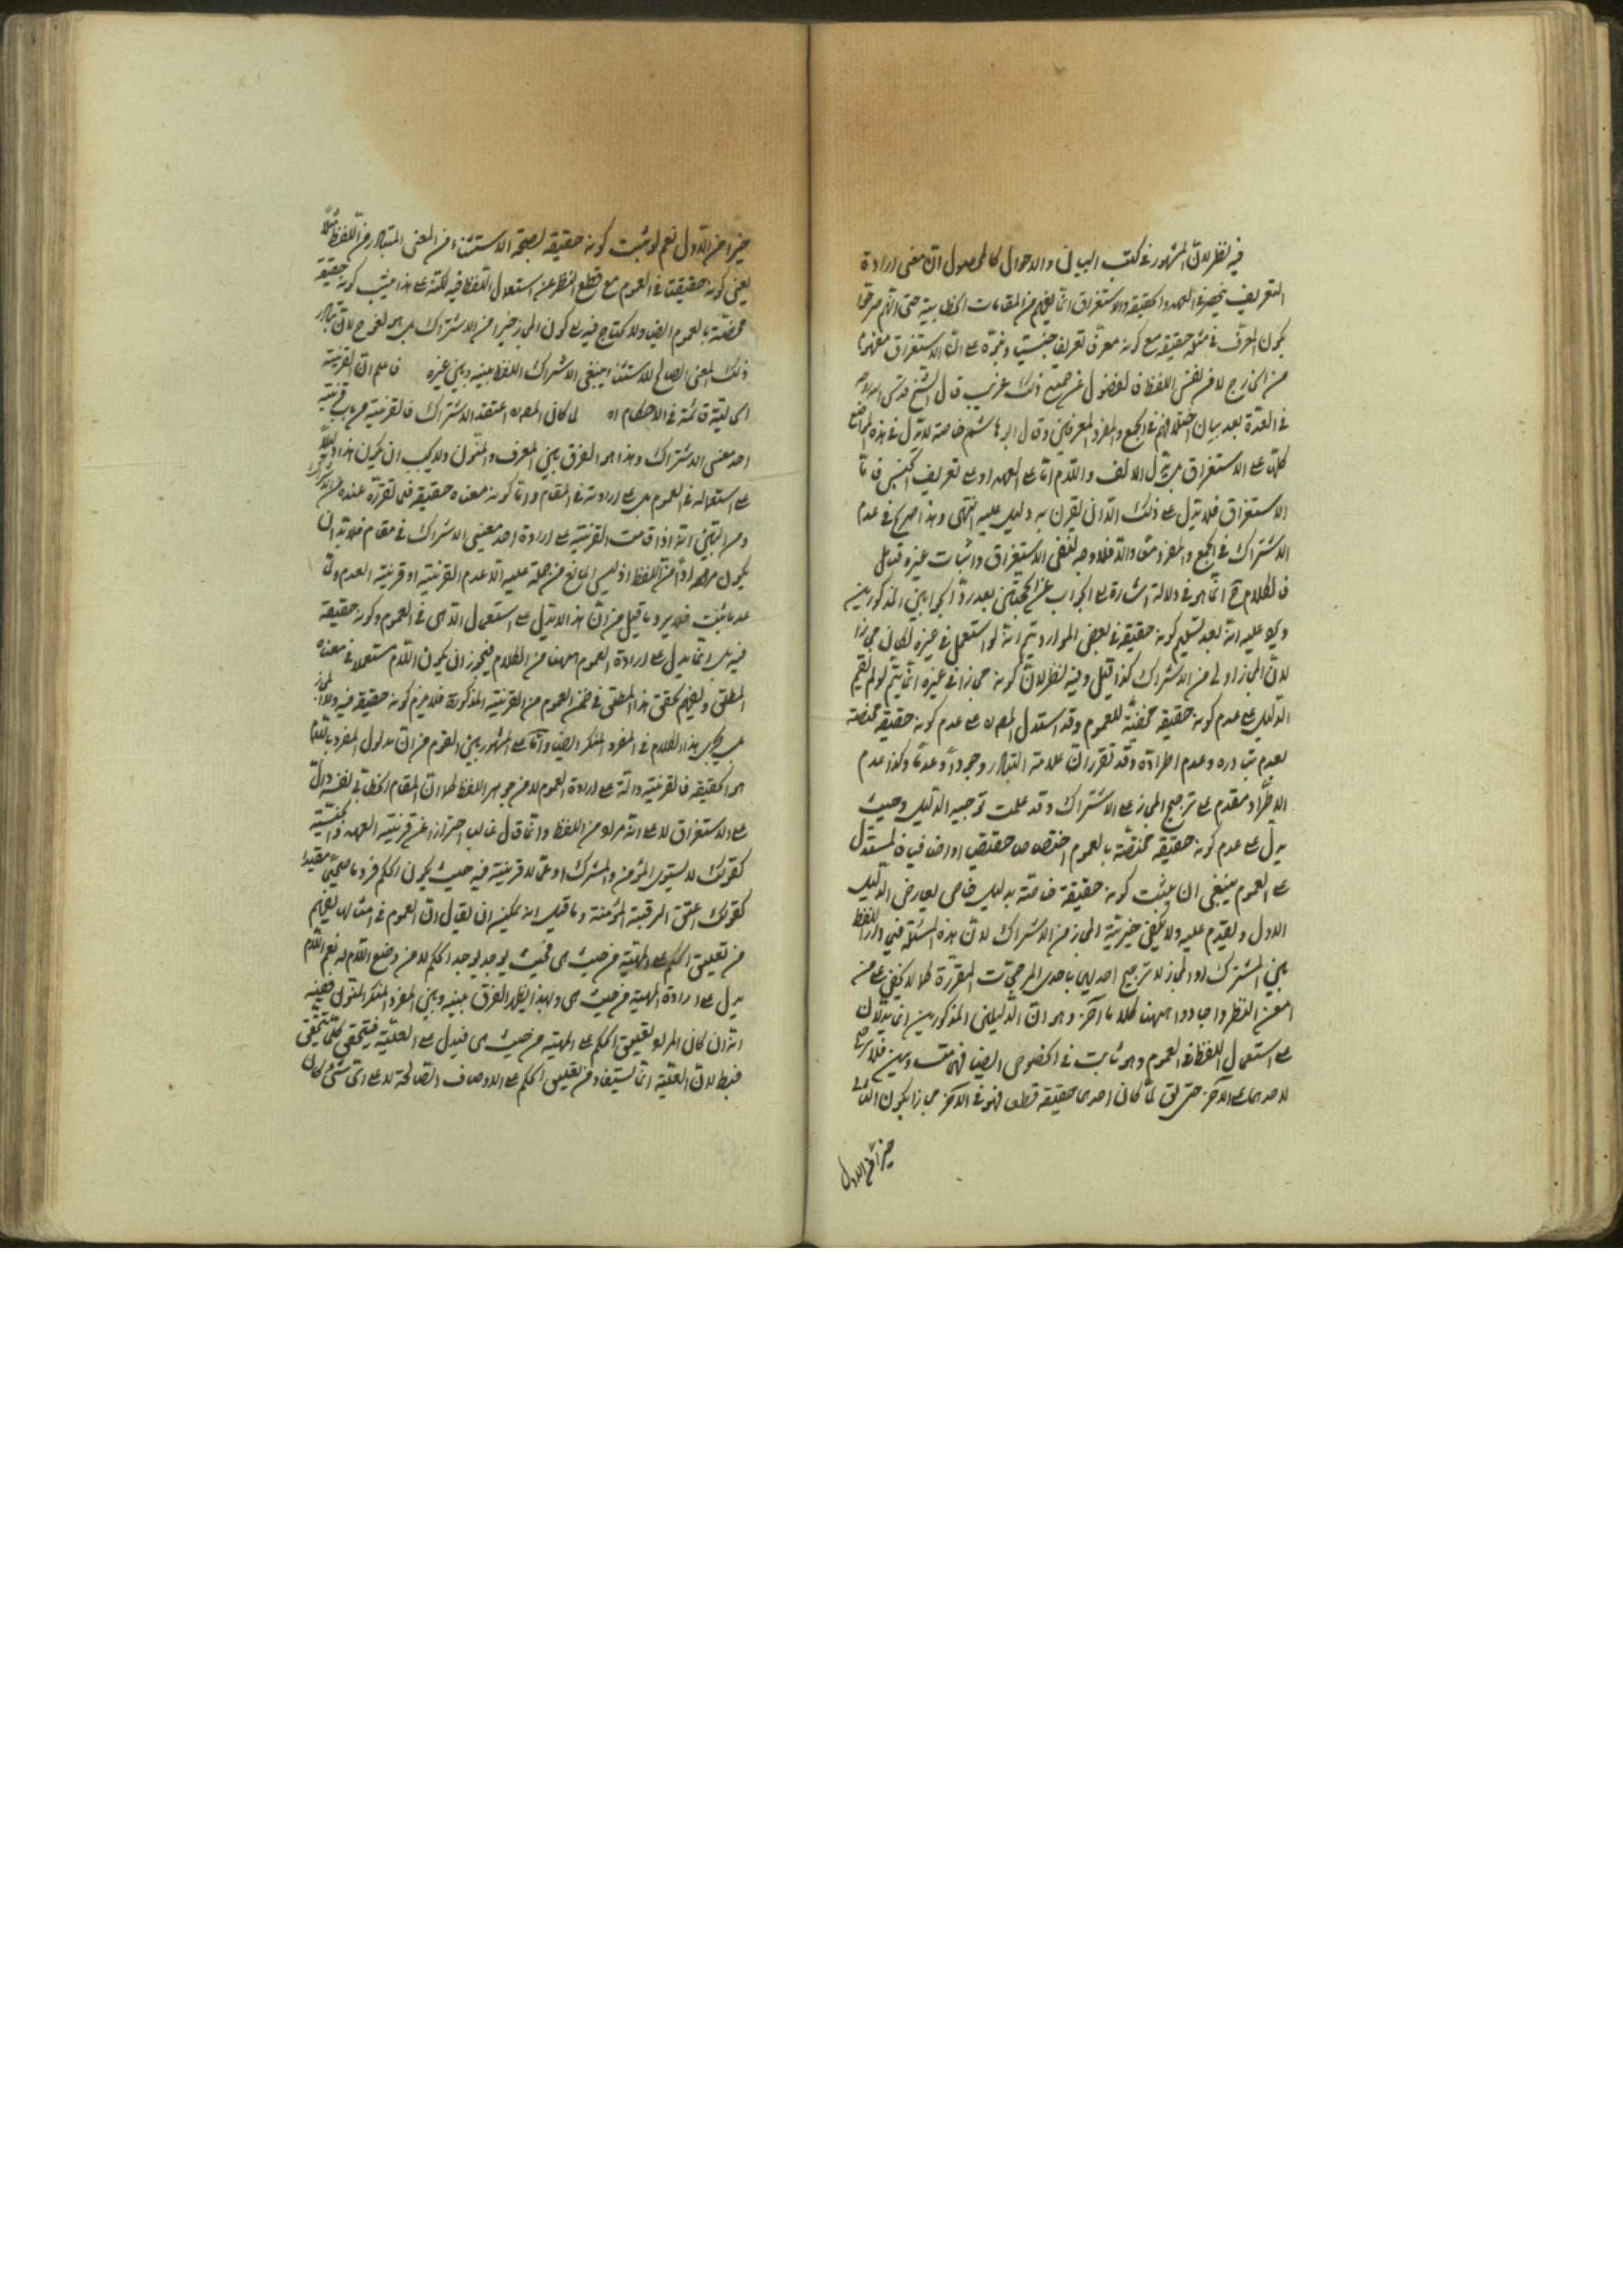 فيه نظر لان المشهور في كتب البيان والاحوال كالمحصول ان معنى ارادة
التعريف ينحصر في العهد والحقيقة والاستغراق انما يفهم من المقامات الخطابية حتى انهم صرحوا
بكون المعرف في مثله حقيقة مع كونه معرف تعريف جنسيت ونحوه على ان الاستغراق مفهوما
من الخارج لا من نفس اللفظ فالعضول عن جميع ذلك غريب قال الشيخ قدس الله روحه
في العدة بعد بيان اختلافهم في الجمع والمفرد المعرفين وقال ابو هاشم خاصة لا يدل في هذه المواضع
كلها على الاستغراق بل يدل الالف واللام اما على العهد او على تعريف الجنس فاما
الاستغراق فلا يدل على ذلك الا ان يقرن به دليل عليه انتهى وهذا صريح في عدم
الاشتراك في الجمع والمفرد معا والا فلا وجه لنفي الاستغراق واثبات غيره قبل
فالكلام ح انما هو في دلالة اشارة الى الجواب عن الحجتين بعد رد الجوابين المذكورين
ويجه عليه انه بعد تسليم كونه حقيقة في بعض الموارد يتم انه لو استعمل في غيره لكان مجازا
لان المجاز اولى من الاشتراك كذا قيل وفيه نظر لان كونه مجازا في غيره انما يتم لو لم يقم
الدليل على عدم كونه حقيقة مختصة للعموم وقد استدل المصره على عدم كونه حقيقة مختصة
بعدم تبادره وعدم اطراده وقد تقرر ان علامة التبادر وجودا وعدما وكذا عدم
الاطراد مقدم على ترجيح المجاز على الاشتراك وقد علمت توجيه الدليل وحيث
يدل على عدم كونه حقيقة مختصة بالعموم اختصاصا حقيقيا او اضافيا فالمستدل
على العموم ينبغي ان يثبت كونه حقيقة خاصة بدليل خاص يعارض الدليل
الاول ويقدم عليه ولا يكفي خيرية المجاز من الاشتراك لان هذه المسئلة فيما دار اللفظ
بين المشترك والمجاز لا ترجيح احديهما باحدى المرجحات المقررة كما لا يخفى على من
امعن النظر واجاد واهيهنا كلاما آخر وهو ان الدليلين المذكورين انما يدلان
على استعمال اللفظ في العموم وهو ثابت في الخصوص ايضا فهما متساويين فلا ترجح
لاحدهما على الآخر حتى يق لما كان احدى حقيقة قطعا فهو في الآخر مجازا بكون الثاني
خيرا من الاول
خيرا من الاول نعم لو ثبت كونه حقيقة بصحة الاستثناء من المعنى المتبادر من اللفظ مثلا
يعني كونه حقيقتا في العموم مع قطع النظر عن استعمال اللفظ فيه لكنه على هذا حيث كونه حقيقة
مختصة بالعموم ايضا ولا يحتاج فيه الى كون المجاز خيرا من الاشتراك بل هو لغو ح لان تبادر
ذلك المعنى الصالح للاستثناء ينبغي الاشتراك اللفظ بينه وبين غيره فاعلم ان القرينة
الحالية قائمة في الاحكام اه لما كان المصره اعتقد الاشتراك فالقرينة من باب قرينة
احد معنيي الاشتراك وهذا هو الفرق بين المعرف والمنون ولا يجب ان يكون هذا دليلا
على استعماله في العموم بل على ارادته في المقام واما كونه معناه حقيقة فلما تقرر عنده من الاشتراك
ومن البين انه اذا قامت القرينة على ارادة احد معنيي الاشتراك في مقام فلا بد ان
يكون مرادا من اللفظ اذ ليس المانع من حمله عليه الا عدم القرينة او قرينة العدم ولما
عدما ثبت فلا يرد ما قيل من ان هذا لا يدل على استعمال الا هي في العموم وكونه حقيقة
فيه بل انما يدل على ارادة العموم ههنا من الكلام فيجوز ان يكون اللام مستعملا في معناه
المطلق ويفهم تحقق هذا المطلق في ضمن العموم من القرينة المذكورة فلا يلزم كونه حقيقة فيه ولا مجاز
بل يجري هذا الكلام في المفرد المنكر ايضا واما على المشهور بين القوم من ان مدلول المفرد باللام
هو الحقيقة فالقرينة دالة على ارادة العموم لا من جوهر اللفظ كما ان المقام الخطابي لنفسه دال
على الاستغراق لا على انه مراد من اللفظ وانما قال غالبا احترازا عن قرينة العهد والجنسية
كقولك لا يستوي المؤمن والمشرك او عما لا قرينة فيه حيث يكون الحكم فردا ما صحيحا مفيدا
كقولك اعتق الرقبة المؤمنة وما قيل انه يمكن ان يقال ان العموم في امثالها يفهم
من تعليق الحكم على المهية من حيث هي فحيث يوجد يوجد الحكم لا من وضع اللام له نعم اللام
يدل على ارادة المهية من حيث هي وبهذا يظهر الفرق بينه وبين المفرد المنكر المنون ففيه
انه ان كان المراد تعليق الحكم على المهية من حيث هي فيدل على العلية فيتحقق كلما يتحقق
فبط لان العلية انما يستفاد من تعليق الحكم على الاوصاف الصالحة لا على اي شئ كان